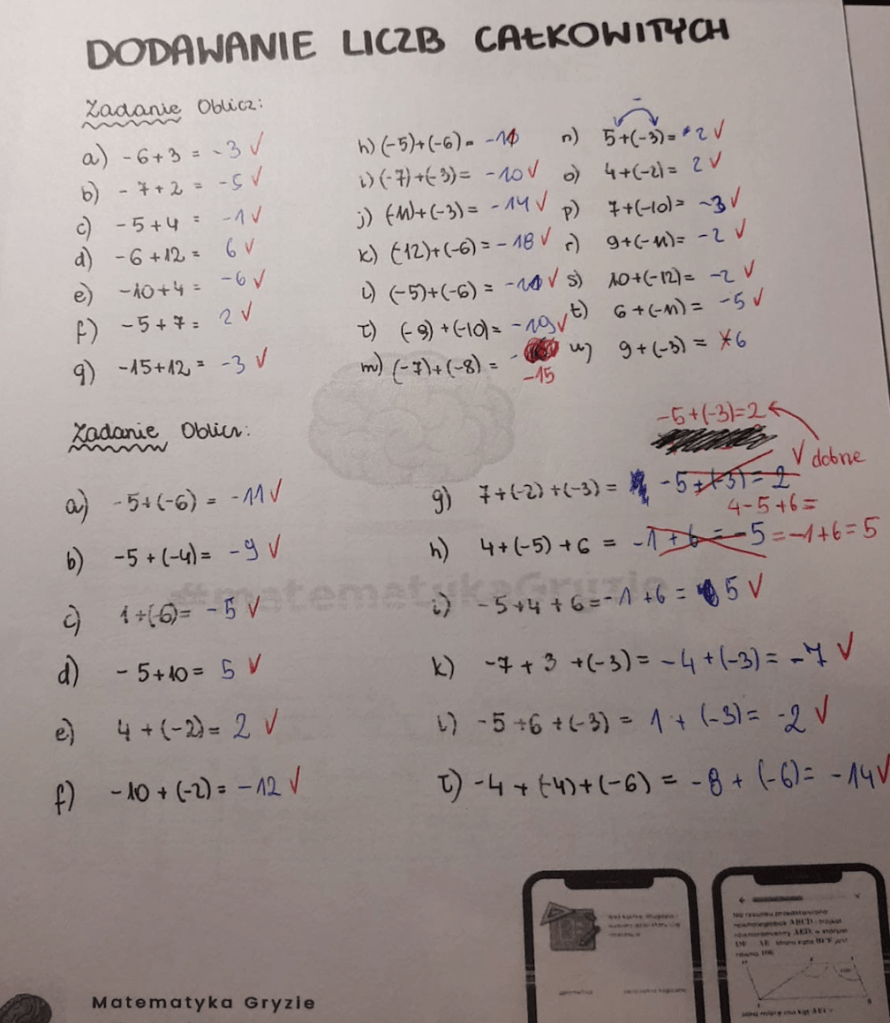 DODAWANIE LICZB CAŁKOWITYCH
Zadanie Oblicz:
a) -6+3 = -3 ✓
b) -7+2 = -5 ✓
c) -5+4 = -1 ✓
d) -6+12= 6 ✓
e) -10+4 = -6 ✓
f) -5+7= 2 ✓
g) -15+12= -3 ✓
h) (-5)+(-6)= -11
i) (-7)+(-3)= -10 ✓
j) (-11)+(-3)= -14 ✓
k) (-12)+(-6)= -18 ✓
l) (-5)+(-6) = -11 ✓
ł) (-9)+(-10)= -19 ✓
m) (-7)+(-8) = -
-15
n) 5+(-3)= 2 ✓
o) 4+(-2)= 2 ✓
p) 7+(-10)= -3 ✓
r) 9+(-11)= -2 ✓
s) 10+(-12)= -2 ✓
t) 6+(-11)= -5 ✓
u) 9+(-3) = 6
Zadanie Oblicz:
a) -5+(-6) = -11 ✓
b) -5+(-4)= -9 ✓
c) 1+(-6)= -5 ✓
d) -5+10= 5 ✓
e) 4+(-2)= 2 ✓
f) -10+(-2)= -12 ✓
-5+(-3)=2
✓ dobne
g) 7+(-2)+(-3) = -5+(-3)=2
4-5+6=
h) 4+(-5)+6 = -1+6=-5 =-1+6=5
i) -5+4+6=-1+6= 5 ✓
k) -7+3+(-3)= -4+(-3)= -7 ✓
l) -5+6+(-3) = 1+(-3)= -2 ✓
ł) -4+(-4)+(-6) = -8+(-6)= -14 ✓
#matematykaGryzie
Matematyka Gryzie